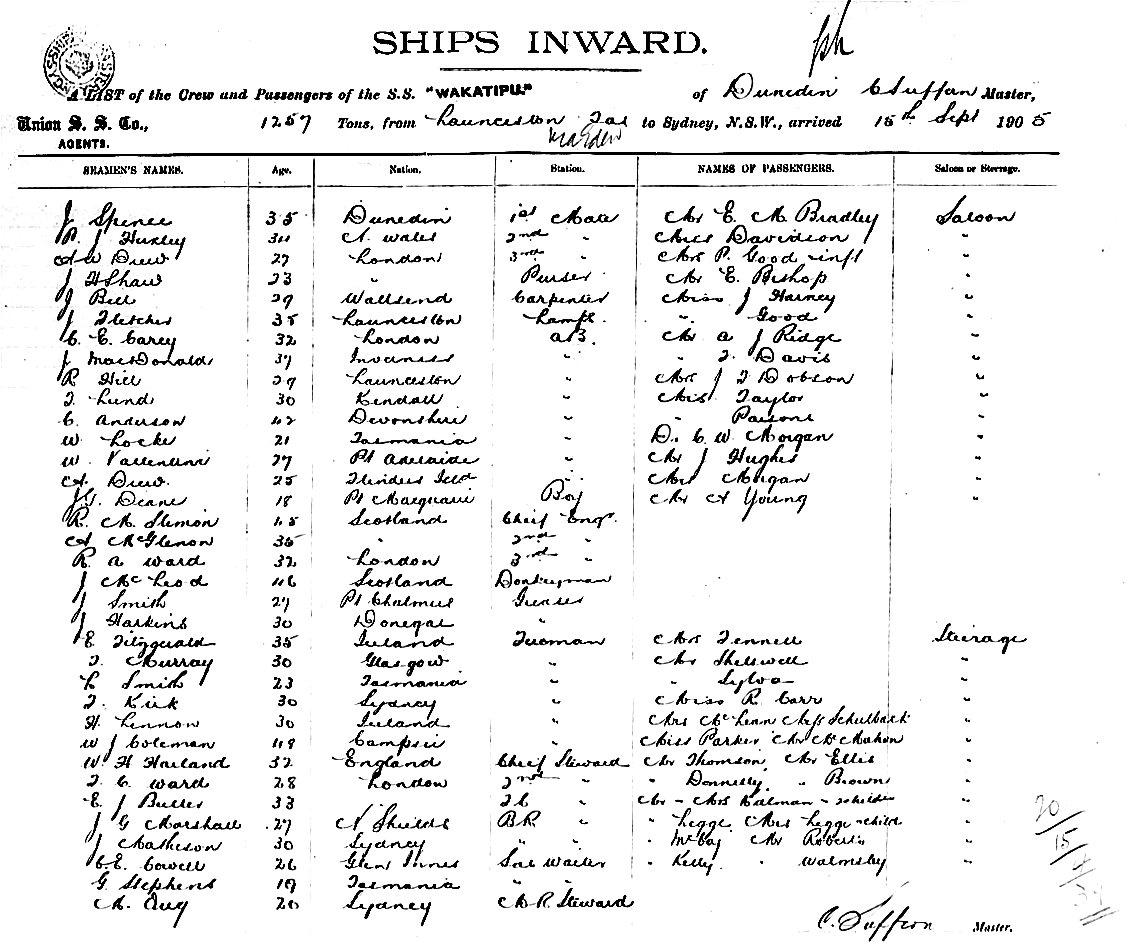 SHIPS INWARD.
A LIST of the Crew and Passengers of the S.S. "WAKATIPU." of Dunedin C Suffern Master,
Union S. S. Co., 1257 Tons, from Launceston Tas to Sydney, N.S.W., arrived 15th Sept 1905
AGENTS.
SEAMEN'S NAMES. Age. Nation. Station. NAMES OF PASSENGERS. Saloon or Steerage.
J Spence 35 Dunedin 1st Mate Mr E. M. Bradley Saloon
R. J Huxley 34 N. Wales 2nd " Miss Davidson "
A W Drew 27 London 3rd " Mrs P. Good - inft "
J H Shaw 23 " Purser Mr E. Bishop "
J Bell 29 Wallsend Carpenter Miss J Harney "
J Fletcher 35 Launceston Lamps. " Good "
C. E. Carey 32 London AB. Mr A J Ridge "
J MacDonald 37 Inverness " " T. Davis "
R Hill 29 Launceston " Mrs J T Dobson "
T. Lund 30 Kendall " Miss Taylor "
C. Anderson 42 Devonshire " " Parsons "
W Locke 21 Tasmania " Dr C W Morgan "
W Vallentini 27 Pt Adelaide " Mr J Hughes "
A Drew. 25 Flinders Isld " Mrs Morgan "
J G. Deane 18 Pt Macquarie Boy Mr A Young "
R. M. Slemon 45 Scotland Cheif Engr.
A McGlenon 36 " 2nd "
R A Ward 32 London 3rd "
J McLeod 46 Scotland Donkeyman
J Smith 27 Pt Chalmers Greaser
J Harkins 30 Donegal "
E. Fitzgerald 35 Ireland Fireman Mrs Fennell Steerage
T. Murray 30 Glasgow " Mr Shelswell "
L Smith 23 Tasmania " " Sylva "
T. Kirk 30 Sydney " Miss R. Carr "
H Lennon 30 Ireland " Mrs McLean Miss Schulback "
W J Coleman 48 Campsie " Miss Parker Mr McMahon "
W H Harland 32 England Cheif Steward Mr Thomson, Mr Ellis "
T. C. Ward 28 London 2nd " " Donnelly, " Brown "
E. J Butler 33 FC " Mr - Mrs Kalman - "
J G Marshall 27 N Shields BR " " Legge Mrs Legge - child "
J Matheson 30 Sydney " " McCoy Mr Roberts "
C E. Cowell 26 Glen Innes Sal Waiter " Kelly " Walmsley "
G. Stephens 19 Tasmania " "
M. Aug 20 Sydney M R. Steward
C. Suffern Master.